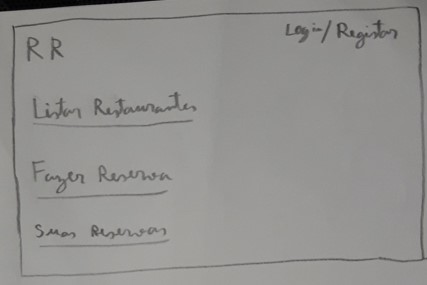 RR
Login/Registar
Listar Restaurantes
Fazer Reserva
Suas Reservas